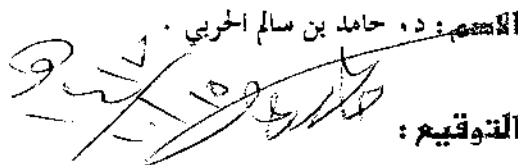 الاسم : د. حامد بن سالم الحربي .
التوقيع :